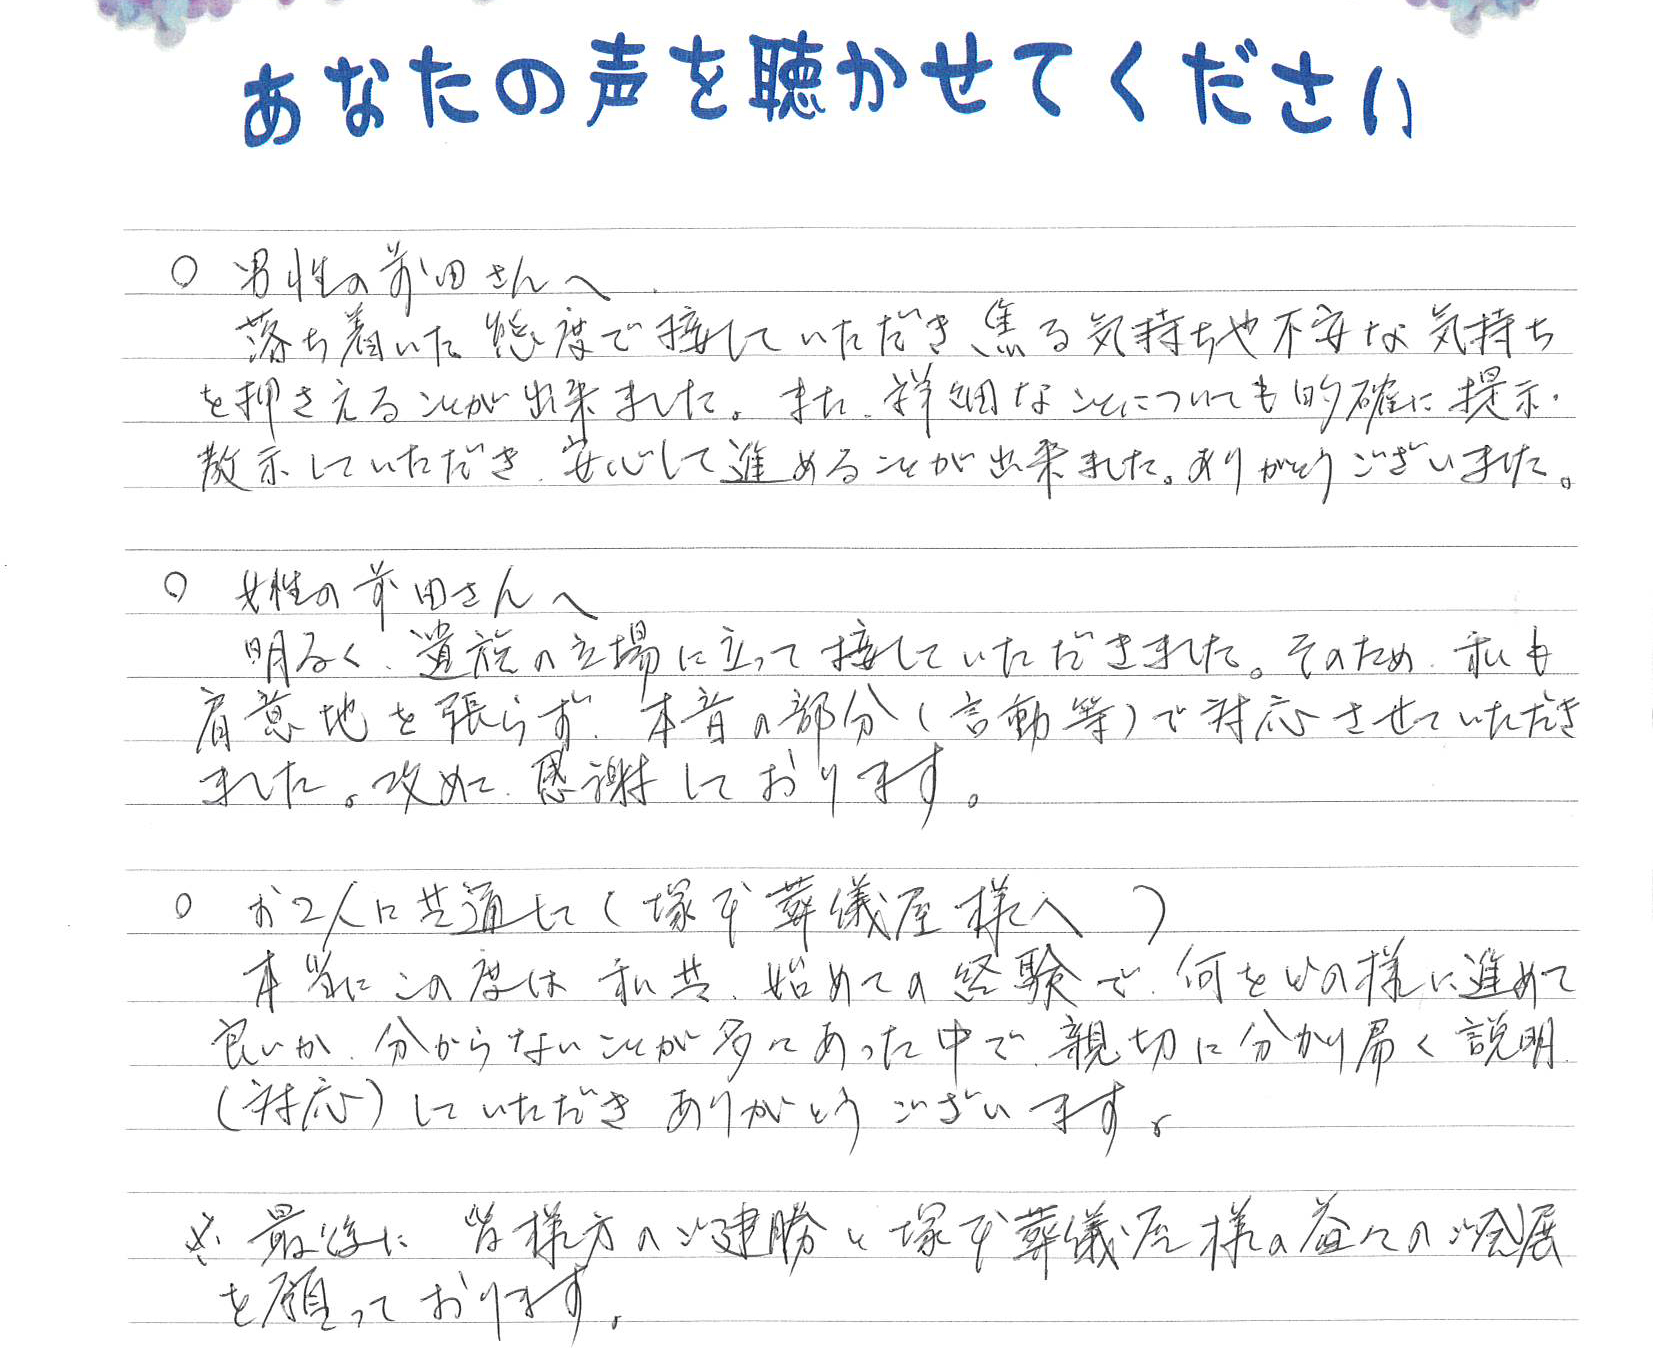 あなたの声を聴かせてください
○ 男性の前田さんへ
落ち着いた態度で接していただき、焦る気持ちや不安な気持ち
を押さえることが出来ました。また、詳細なことについても的確に提示・
教示していただき、安心して進めることが出来ました。ありがとうございました。
○ 女性の前田さんへ
明るく、遺族の立場に立って接していただきました。そのため、私も
肩意地を張らず、本音の部分(言動等)で対応させていただき
ました。改めて、感謝しております。
○ お2人に共通して(塚本葬儀屋様へ )
本当にこの度は私共、始めての経験で、何をどの様に進めて
良いか、分からないことが多々あった中で、親切に分かり易く説明
(対応)していただきありがとうございます。
※ 最後に 皆様方のご健勝と塚本葬儀屋様の益々のご発展
を願っております。